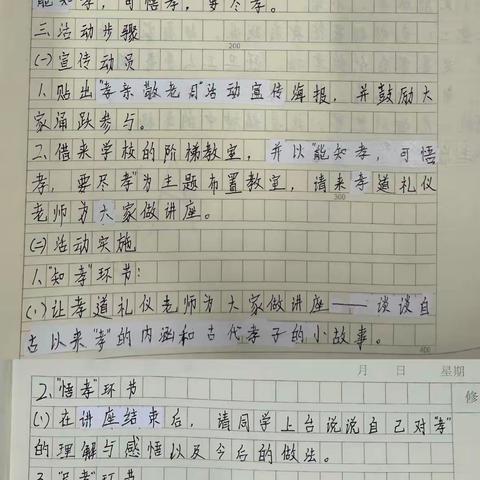 能知孝，可悟孝，要尽孝。
三.活动步骤
200
(一)宣传动员
1.贴出"孝亲敬老月"活动宣传海报，并鼓励大
家涌跃参与。
二.借来学校的阶梯教室，并以"能知孝，可悟
孝，要尽孝"为主题布置教室，请来孝道礼仪
300
老师为大家做讲座。
(二)活动实施
1."知孝"环节：
(1)让孝道礼仪老师为大家做讲座——谈谈自
古以来"孝"的内涵和古代孝子的小故事。
400
月 日 星期
2."悟孝"环节
修
(1)在讲座结束后，请同学上台说说自己对"孝"
的理解与感悟以及今后的做法。